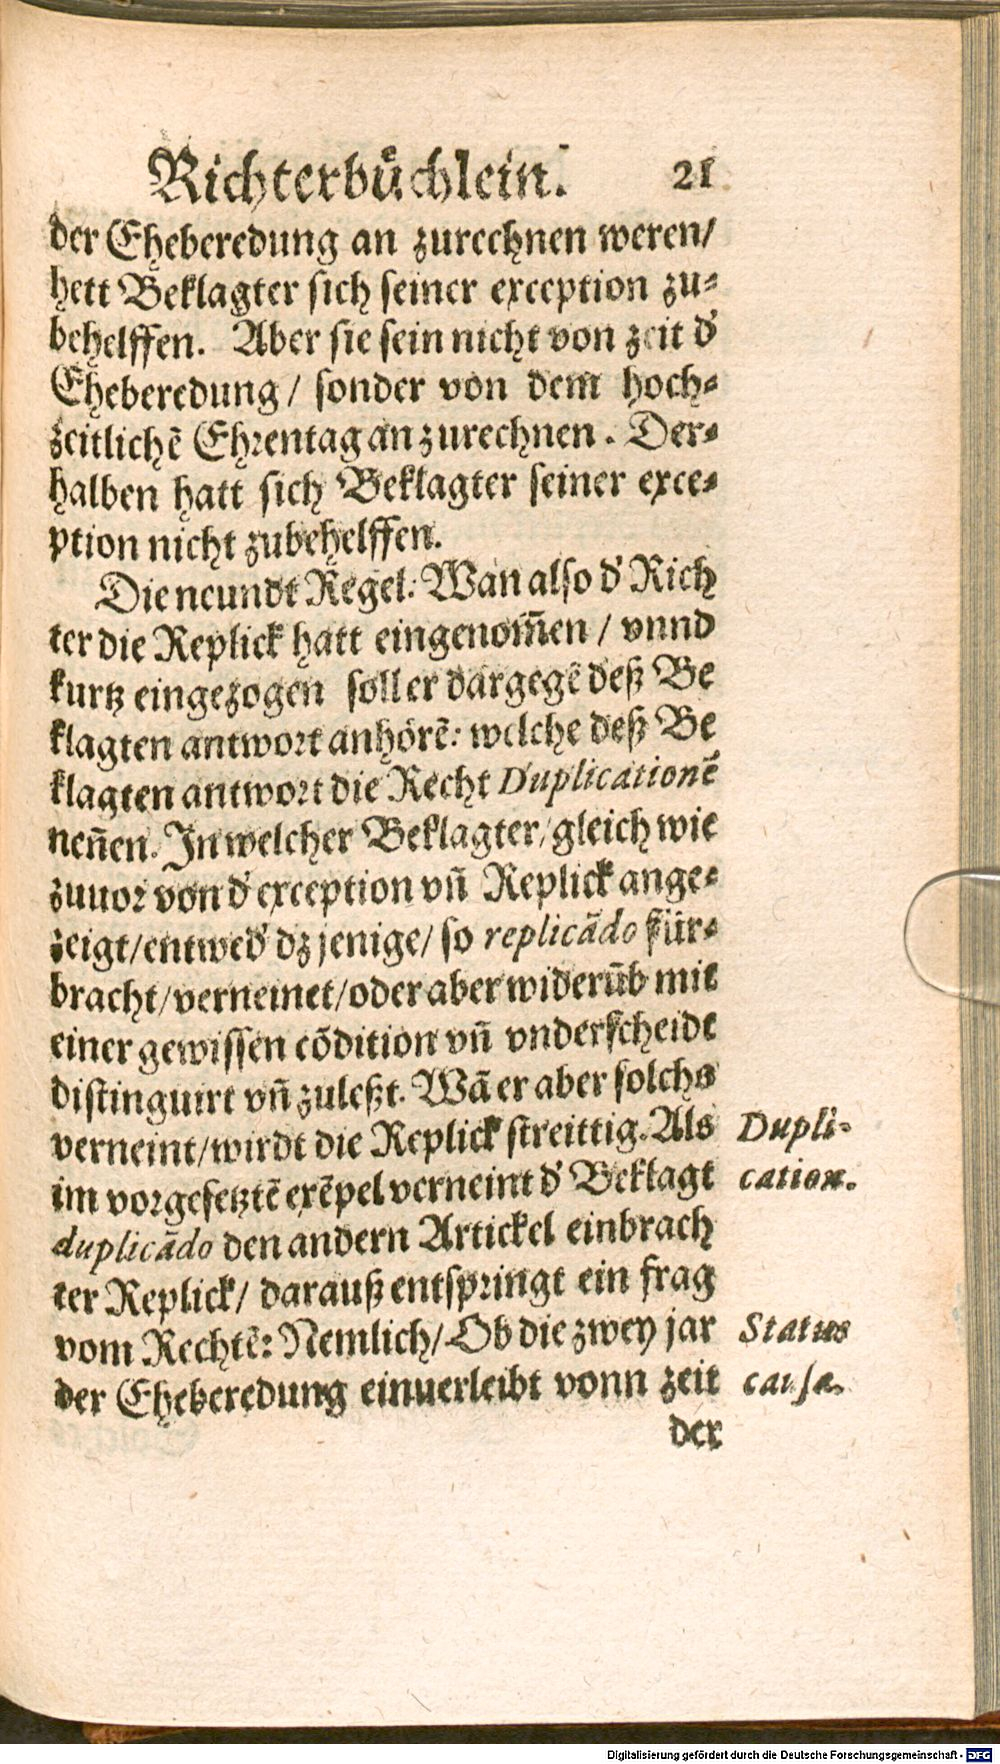 Richterbuͤchlein. 21
der Eheberedung an zurechnen weren/
hett Beklagter sich seiner exception zu-
behelffen. Aber sie sein nicht von zeit d'
Eheberedung / sonder von dem hoch-
zeitlichẽ Ehrentag an zurechnen. Der-
halben hatt sich Beklagter seiner exce-
ption nicht zubehelffen.
Die neundt Regel: Wan also d' Rich
ter die Replick hatt eingenom̃en / vnnd
kurtz eingezogen soll er dargegẽ deß Be
klagten antwort anhörẽ: welche deß Be
klagten antwort die Recht Duplicationẽ
nen̄en. In welcher Beklagter/ gleich wie
zuuor von d' exception vn̄ Replick ange-
zeigt/entwed' dz jenige/ so replicãdo für-
bracht/verneinet/oder aber widerũb mit
einer gewissen cõdition vn̄ vnderscheidt
distinguirt vn̄ zuleßt. Wã er aber solchs
verneint/wirdt die Replick streittig. Als
im vorgesetztẽ exẽpel verneint d' Beklagt
duplicãdo den andern Artickel einbrach
ter Replick/ darauß entspringt ein frag
vom Rechtẽ: Nemlich/ Ob die zwey jar
der Eheberedung einuerleibt vonn zeit
der
Dupli-
cation.
Status
causæ.
Digitalisierung gefördert durch die Deutsche Forschungsgemeinschaft - DFG